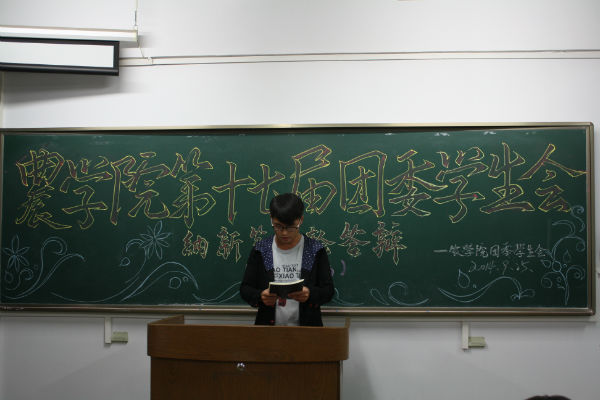 農学院第十七届团委学生会
納新第 答辩
一农学院团委学生会
2014.
TIAN